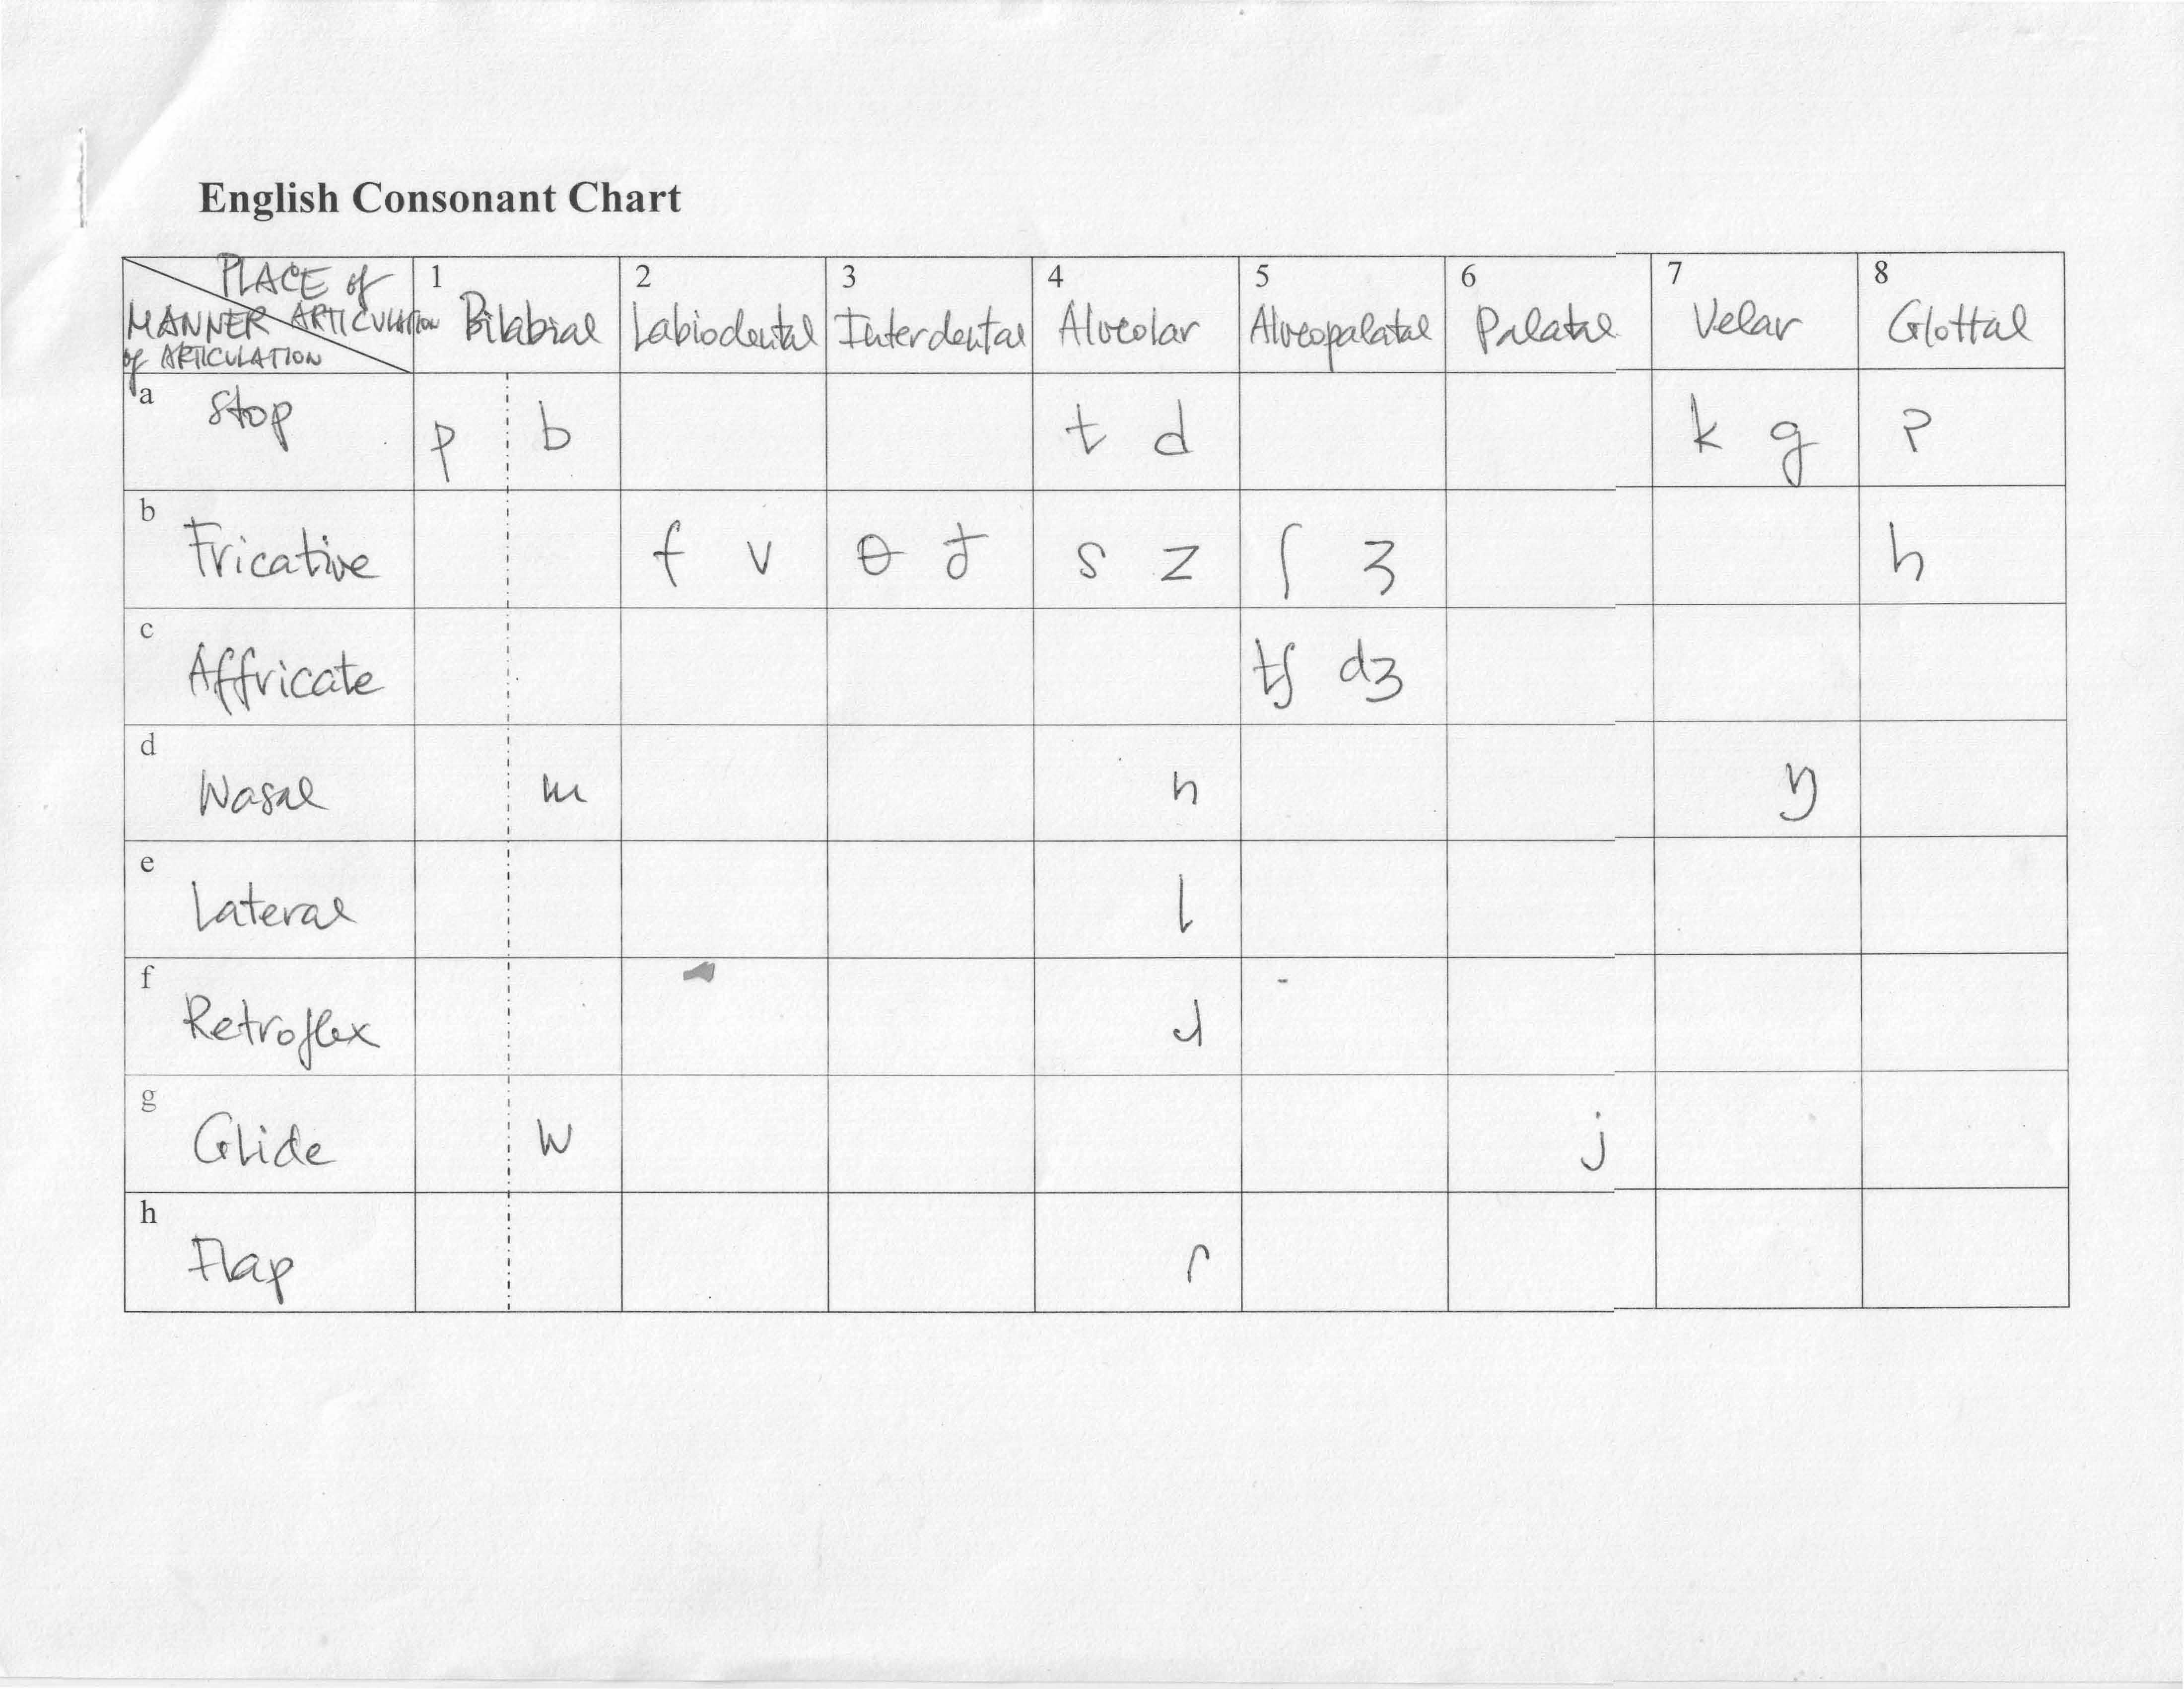 English Consonant Chart
PLACE of ARTICULATION
MANNER of ARTICULATION
1 Bilabial 2 Labiodental 3 Interdental 4 Alveolar 5 Alveopalatal 6 Palatal 7 Velar 8 Glottal
a Stop p b t d k g ʔ
b Fricative f v θ ð s z ʃ ʒ h
c Affricate tʃ dʒ
d Nasal m n ŋ
e Lateral l
f Retroflex ɹ
g Glide w j
h Flap ɾ